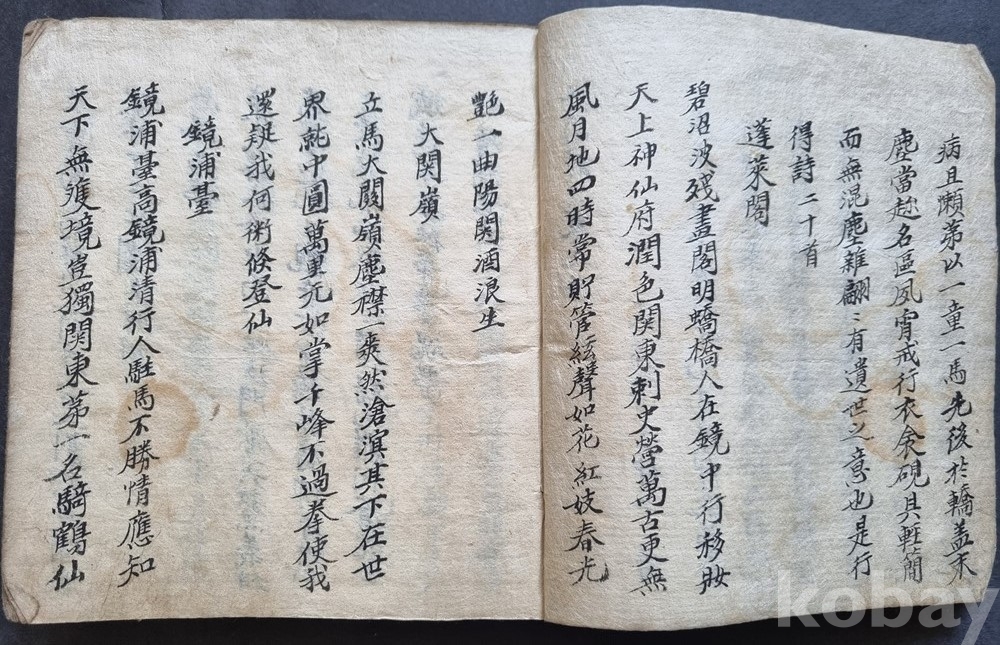 病且懶茅以一童一馬先後於轎盖未
塵當赴名區夙宵戒行衣余硯具輕簡
而無混塵雜翩〻有遺世之意也是行
得詩二十首
蓬萊閣
碧沼波殘畫閣明蟜橋人在鏡中行移妝
天上神仙府潤色関東刺史營萬古更無
風月地四時常貯管絃聲如花紅妓春光
艶一曲陽関酒浪生
大関嶺
立馬大関嶺塵襟一爽然滄溟其下在世
界就中圓萬里元如掌千峰不過拳使我
還疑我何術倏登仙
鏡浦臺
鏡浦臺高鏡浦清行人駐馬不勝情應知
天下無雙境豈獨関東茅一名騎鶴仙
kobay